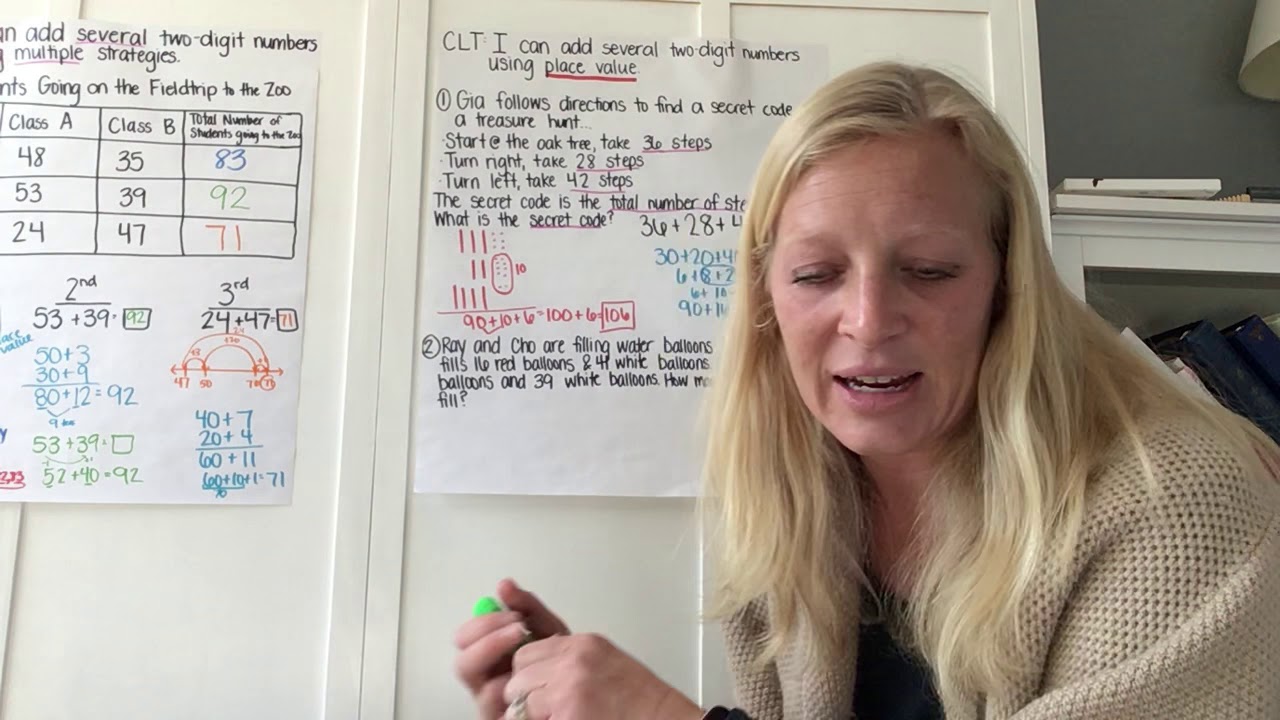 an add several two-digit numbers
multiple strategies.
nts Going on the Fieldtrip to the Zoo
Class A Class B Total Number of Students going to the Zoo
48 35 83
53 39 92
24 47 71
2nd
53+39=92
value
50+3
30+9
80+12=92
53+39=□
52+40=92
3rd
24+47=71
24
+20
+3
47 50 70 71
40+7
20+4
60+11
60+10+1=71
70
CLT: I can add several two-digit numbers
using place value.
① Gia follows directions to find a secret code
a treasure hunt...
·Start @ the oak tree, take 36 steps
·Turn right, take 28 steps
·Turn left, take 42 steps
The secret code is the total number of ste
What is the secret code?
36+28+4
10
90+10+6=100+6=106
30+20+40
6+8+2
6+10
90+1
② Ray and Cho are filling water balloons
fills 16 red balloons & 41 white balloons.
balloons and 39 white balloons. How m
fill?